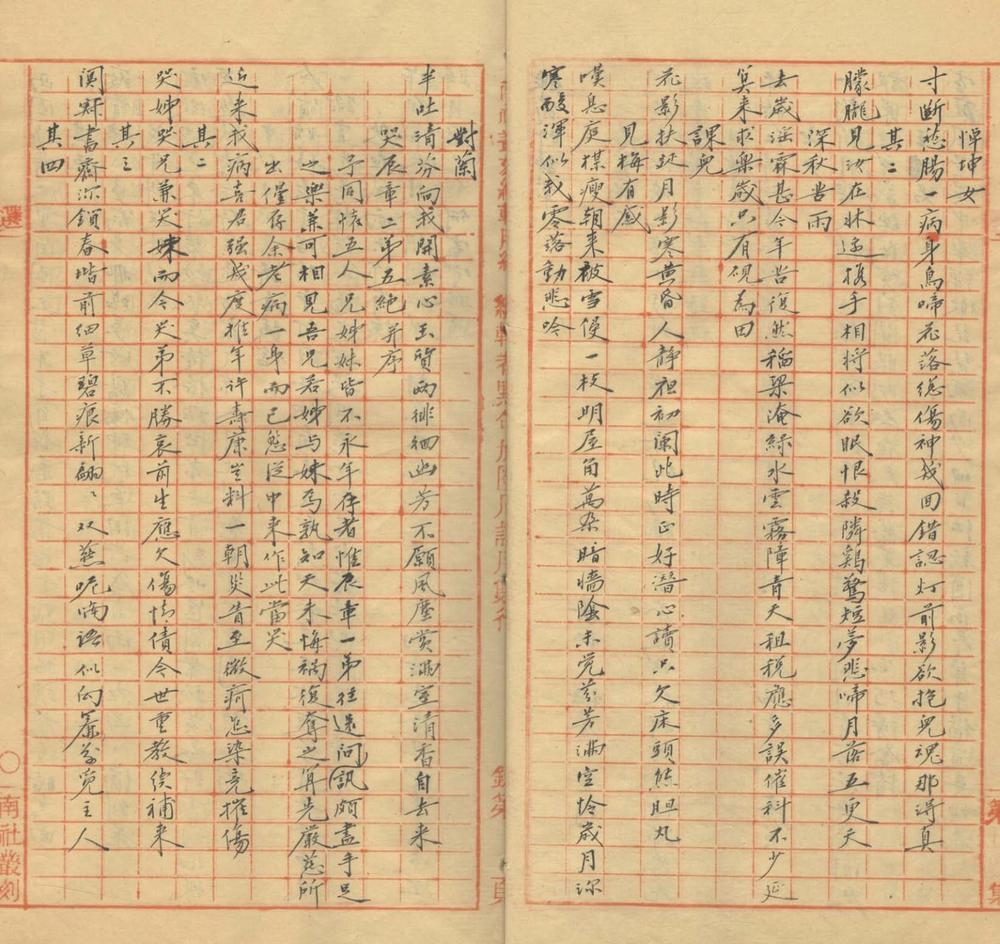 悼坤女
寸斷愁腸一病身鳥啼花落總傷神幾回錯認灯前影欲抱兒魂那得真
其二
朦朧見汝在牀邊携手相將似欲眠恨殺隣鷄驚短夢悲啼月落五更天
深秋苦雨
去歲淫霖甚今年苦復然稻粱淹綠水雲霧障青天租稅應多誤催科不少延
箕來求樂歲只有硯為田
課兒
花影扶疎月影寒黃昏人靜祖初闌此時正好潛心讀只欠床頭熊胆丸
見梅有感
嘆息庭楳瘦朝來被雪侵一枝明屋角萬朶暗墻陰未覺芬芳滿空怜歲月深
寒酸渾似我零落動悲吟
對蘭
半吐清芬向我開素心玉質兩徘徊幽芳不願風塵賞滿室清香自去來
哭辰章二弟五絕并序
予同懷五人兄姊妹皆不永年存者惟辰章一弟往還問訊頗盡手足
之樂兼可相見吾兄若姊与妹焉孰知天未悔禍復奪之算先嚴慈所
出僅存余老病一身而已愁從中來作此當哭
近來我病喜君强幾度推年許壽康豈料一朝災眚至微疴忽染竟摧傷
其二
哭姊哭兄兼哭妹而今哭弟不勝哀前生應欠傷情債今世重教償補來
其三
闃寂書齋深鎖春堦前細草碧痕新翩〻双燕呢喃語似向簾前覓主人
其四
選
南社叢刻
集